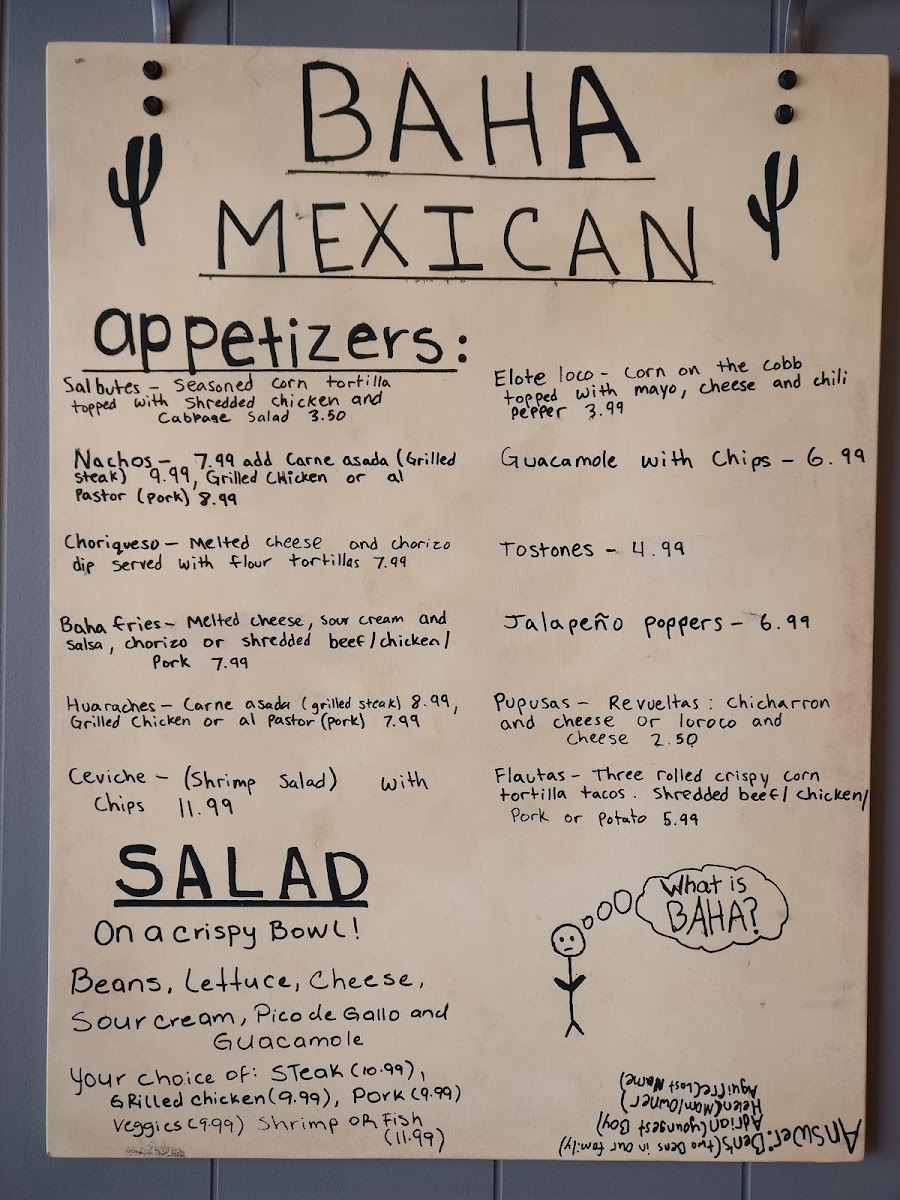 BAHA
MEXICAN
appetizers:
Salbutes - Seasoned corn tortilla
topped with Shredded chicken and
Cabbage Salad 3.50
Nachos - 7.99 add Carne asada (Grilled
steak) 9.99, Grilled Chicken or al
Pastor (Pork) 8.99
Choriqueso - Melted cheese and chorizo
dip served with flour tortillas 7.99
Baha fries - Melted cheese, sour cream and
salsa, chorizo or shredded beef/chicken/
Pork 7.99
Huaraches - Carne asada (grilled steak) 8.99,
Grilled Chicken or al Pastor (pork) 7.99
Ceviche - (Shrimp Salad) with
Chips 11.99
Elote loco - Corn on the cobb
topped with mayo, cheese and chili
pepper 3.99
Guacamole with Chips - 6.99
Tostones - 4.99
Jalapeño poppers - 6.99
Pupusas - Revueltas: chicharron
and cheese or loroco and
cheese 2.50
Flautas - Three rolled crispy corn
tortilla tacos. Shredded beef/chicken/
Pork or Potato 5.99
SALAD
On a crispy Bowl!
Beans, Lettuce, Cheese,
Sour cream, Pico de Gallo and
Guacamole
Your choice of: Steak (10.99),
Grilled chicken (9.99), Pork (9.99)
Veggies (9.99) Shrimp or Fish
(11.99)
What is
BAHA?
Answer: Ben's (two Bens in our family)
Adrian (youngest Boy)
Helen (Mom/owner)
Aguirre (Last Name)